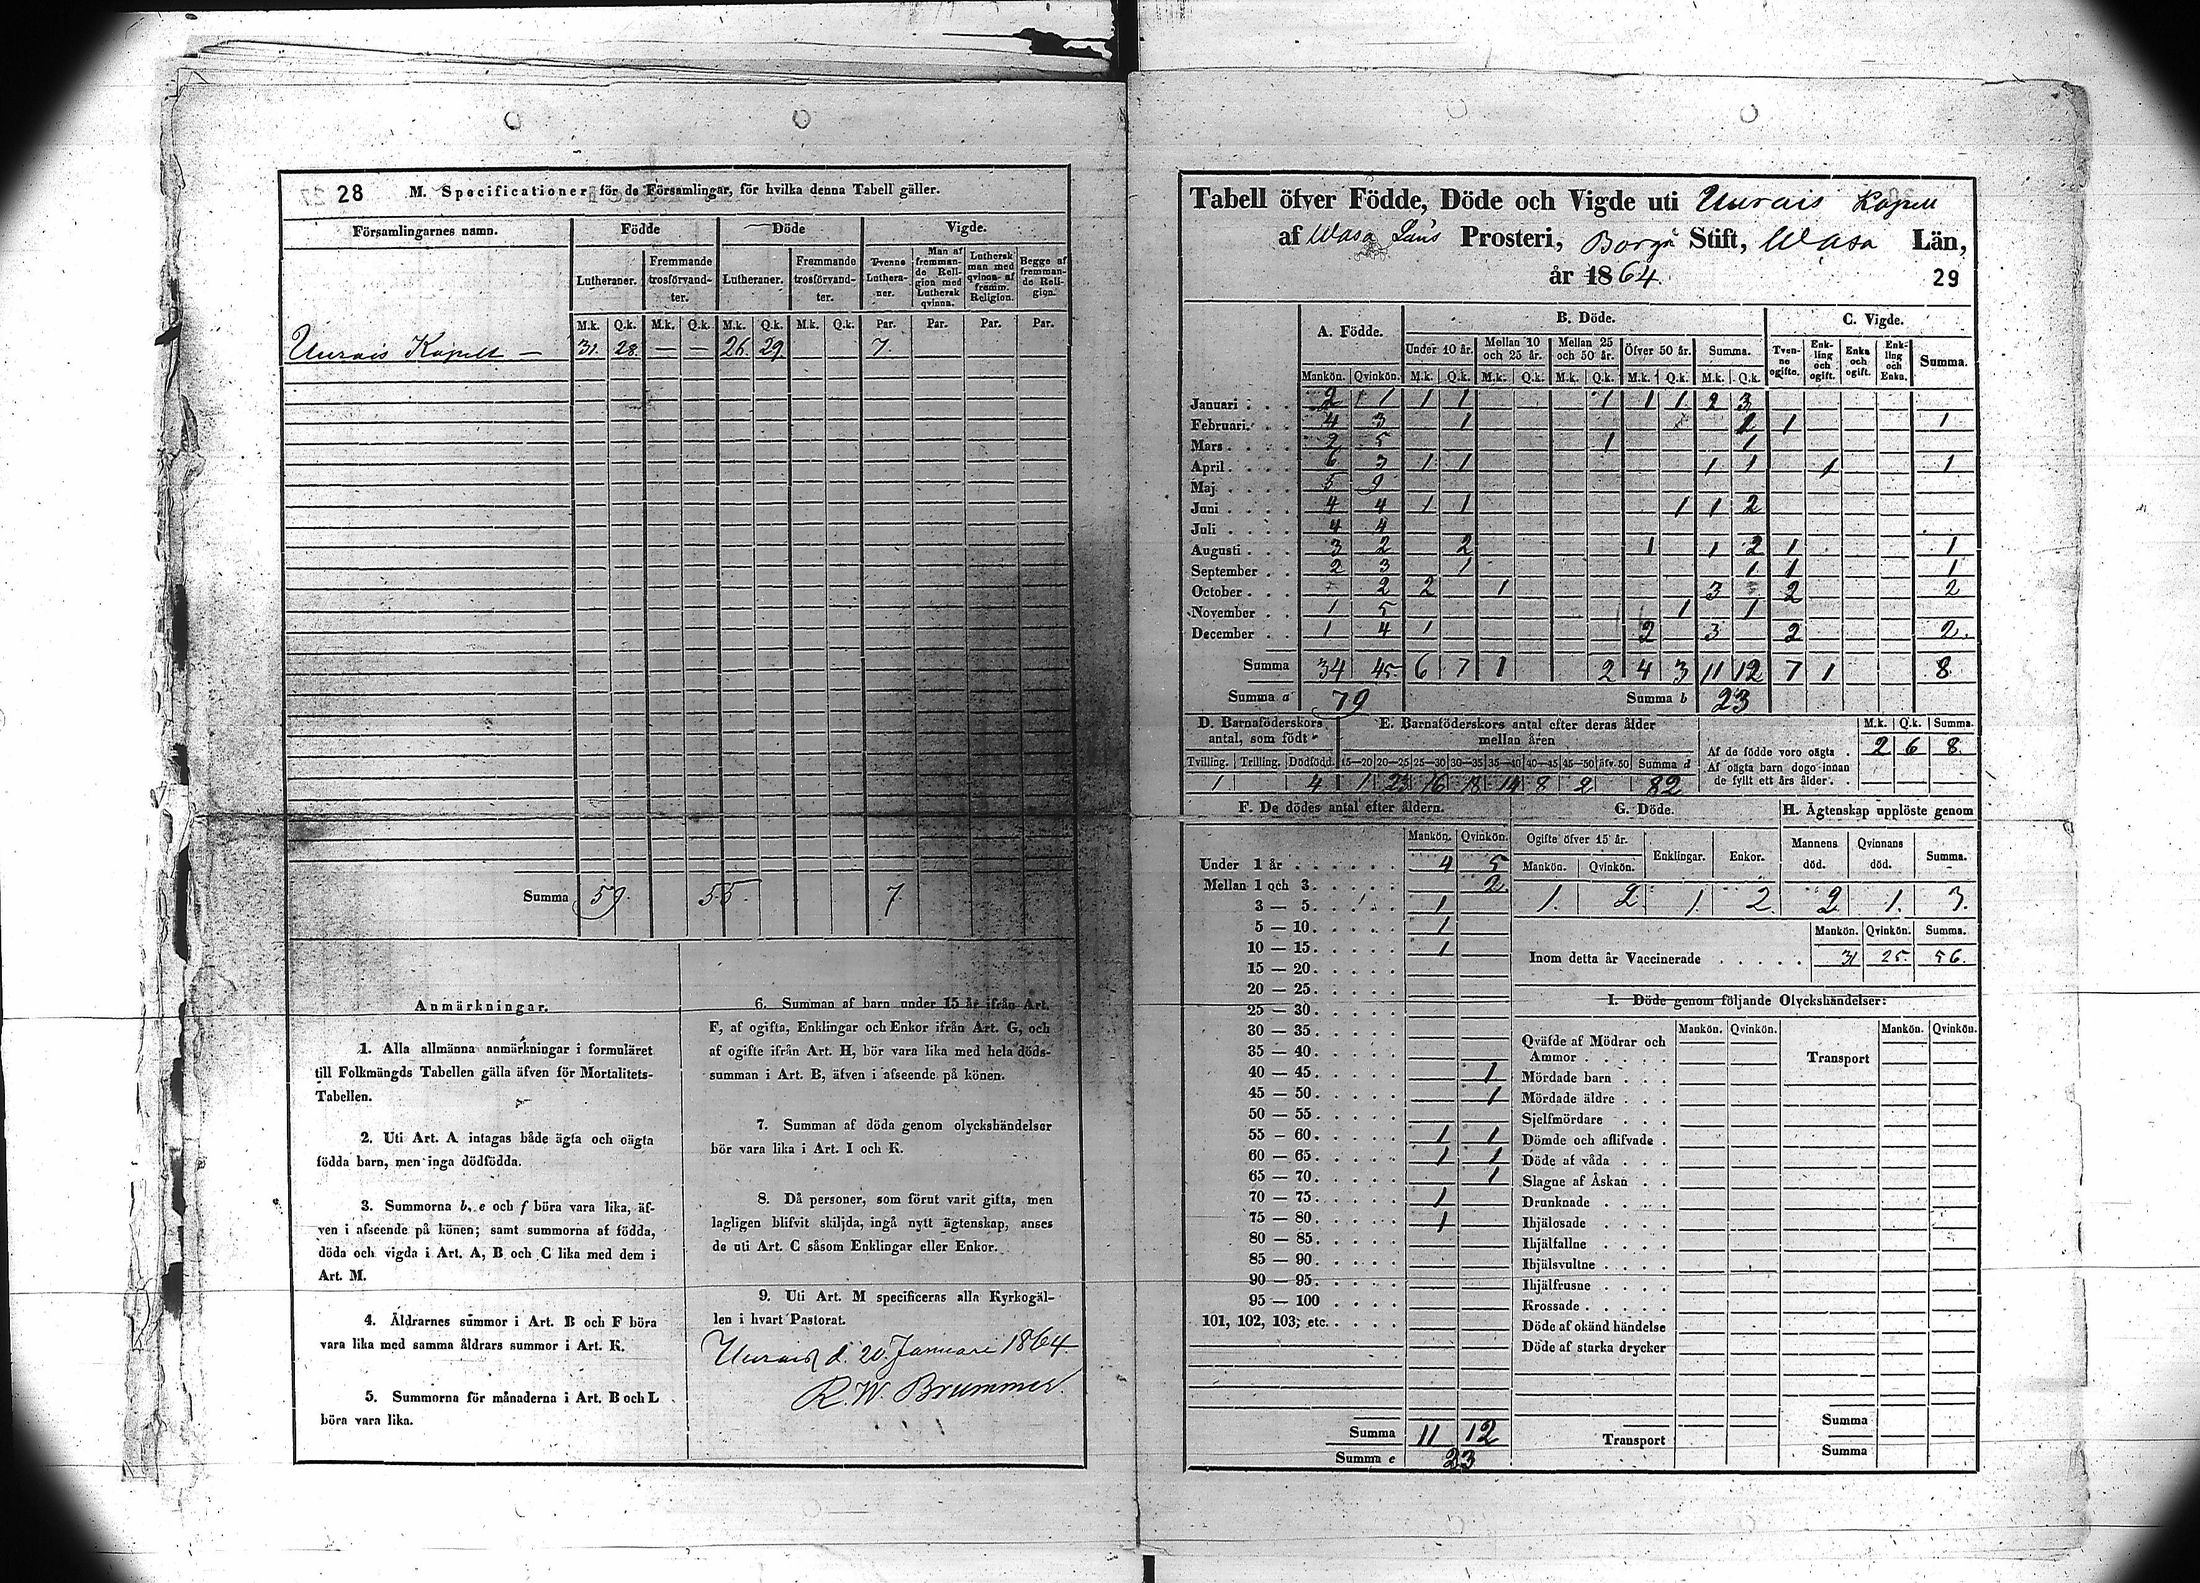 28 M. Specificationer för de Församlingar, för hvilka denna Tabell gäller.
Församlingarnes namn. Födde Döde Vigde.
Lutheraner. Fremmande trosförvandter. Lutheraner. Fremmande trosförvandter. Tvenne Lutheraner. Man af fremmande Religion med Luthersk qvinna. Luthersk man med qvinna af fremm. Religion. Begge af fremmande Religion.
M.k. Q.k. M.k. Q.k. M.k. Q.k. M.k. Q.k. Par. Par. Par. Par.
Uurais Kapell — 31. 28. — — 26. 29. 7.
Summa 59. 55. 7.
Anmärkningar.
1. Alla allmänna anmärkningar i formuläret
till Folkmängds Tabellen gälla äfven för Mortalitets-
Tabellen.
2. Uti Art. A intagas både ägta och oägta
födda barn, men inga dödfödda.
3. Summorna b, e och f böra vara lika, äf-
ven i afseende på könen; samt summorna af födda,
döda och vigda i Art. A, B och C lika med dem i
Art. M.
4. Åldrarnes summor i Art. B och F böra
vara lika med samma åldrars summor i Art. K.
5. Summorna för månaderna i Art. B och L
böra vara lika.
6. Summan af barn under 15 år ifrån Art.
F, af ogifta, Enklingar och Enkor ifrån Art. G, och
af ogifte ifrån Art. H, bör vara lika med hela döds-
summan i Art. B, äfven i afseende på könen.
7. Summan af döda genom olyckshändelser
bör vara lika i Art. I och K.
8. Då personer, som förut varit gifta, men
lagligen blifvit skiljda, ingå nytt ägtenskap, anses
de uti Art. C såsom Enklingar eller Enkor.
9. Uti Art. M specificeras alla Kyrkogäl-
len i hvart Pastorat.
Uurais d. 20. Januari 1864
R. W. Brummer.
Tabell öfver Födde, Döde och Vigde uti Uurais Kapell
af Wasa Läns Prosteri, Borgå Stift, Wasa Län,
år 1864. 29
A. Födde. B. Döde. C. Vigde.
Under 10 år. Mellan 10 och 25 år. Mellan 25 och 50 år. Öfver 50 år. Summa. Tvenne ogifte. Enkling och ogift. Enka och ogift. Enkling och Enka. Summa.
Mankön. Qvinkön. M.k. Q.k. M.k. Q.k. M.k. Q.k. M.k. Q.k. M.k. Q.k.
Januari . . . 2 1 1 1 1 1 1 2 3
Februari. . . 4 3 1 1 1
Mars . . . . 2 5 1 1
April . . . . 6 3 1 1 1 1 1 1
Maj . . . . 5 9
Juni . . . . 4 4 1 1 1 1 2
Juli . . . . 4 4
Augusti . . . 3 2 2 1 1 2 1 1
September . . 2 3 1 1 1 1
October . . . 2 2 1 3 2 2
November . . 1 5 1 1
December . . 1 4 1 2 3 2 2.
Summa 34 45. 6 7 1 2 4 3 11 12 7 1 8
Summa a 79 Summa b 23
D. Barnaföderskors antal, som födt E. Barnaföderskors antal efter deras ålder mellan åren M.k. Q.k. Summa.
Af de födde voro oägta . 2 6 8.
Af oägta barn dogo innan
de fyllt ett års ålder . .
Tvilling. Trilling. Dödfödd. 15—20 20—25 25—30 30—35 35—40 40—45 45—50 öfv. 50 Summa d
1 4 1 23 16 18 14 8 2 82
F. De dödes antal efter åldern. G. Döde. H. Ägtenskap upplöste genom
Mankön. Qvinkön.
Under 1 år . . . . . . 4 5
Mellan 1 och 3 . . . . . 2
3 — 5. . . . . 1
5 — 10. . . . . 1
10 — 15. . . . . 1
15 — 20. . . . .
20 — 25. . . . .
25 — 30. . . . .
30 — 35. . . . .
35 — 40. . . . .
40 — 45. . . . . 1
45 — 50. . . . . 1
50 — 55. . . . .
55 — 60. . . . . 1 1
60 — 65. . . . . 1 1
65 — 70. . . . . 1
70 — 75. . . . . 1
75 — 80. . . . . 1
80 — 85. . . . .
85 — 90. . . . .
90 — 95. . . . .
95 — 100 . . . .
101, 102, 103, etc. . . . .
Summa 11 12
Summa e 23
Ogifte öfver 15 år. Enklingar. Enkor. Mannens död. Qvinnans död. Summa.
Mankön. Qvinkön.
1. 2. 1. 2. 2 1. 3.
Mankön. Qvinkön. Summa.
Inom detta år Vaccinerade . . . . . 31 25. 56.
I. Döde genom följande Olyckshändelser:
Mankön. Qvinkön. Mankön. Qvinkön.
Qväfde af Mödrar och
Ammor . . . . Transport
Mördade barn . . .
Mördade äldre . . .
Sjelfmördare . . .
Dömde och aflifvade .
Döde af våda . . .
Slagne af Åskan . .
Drunknade . . . .
Ihjälosade . . . .
Ihjälfallne . . . .
Ihjälsvultne . . . .
Ihjälfrusne . . . .
Krossade . . . . .
Döde af okänd händelse
Döde af starka drycker
Summa
Transport Summa